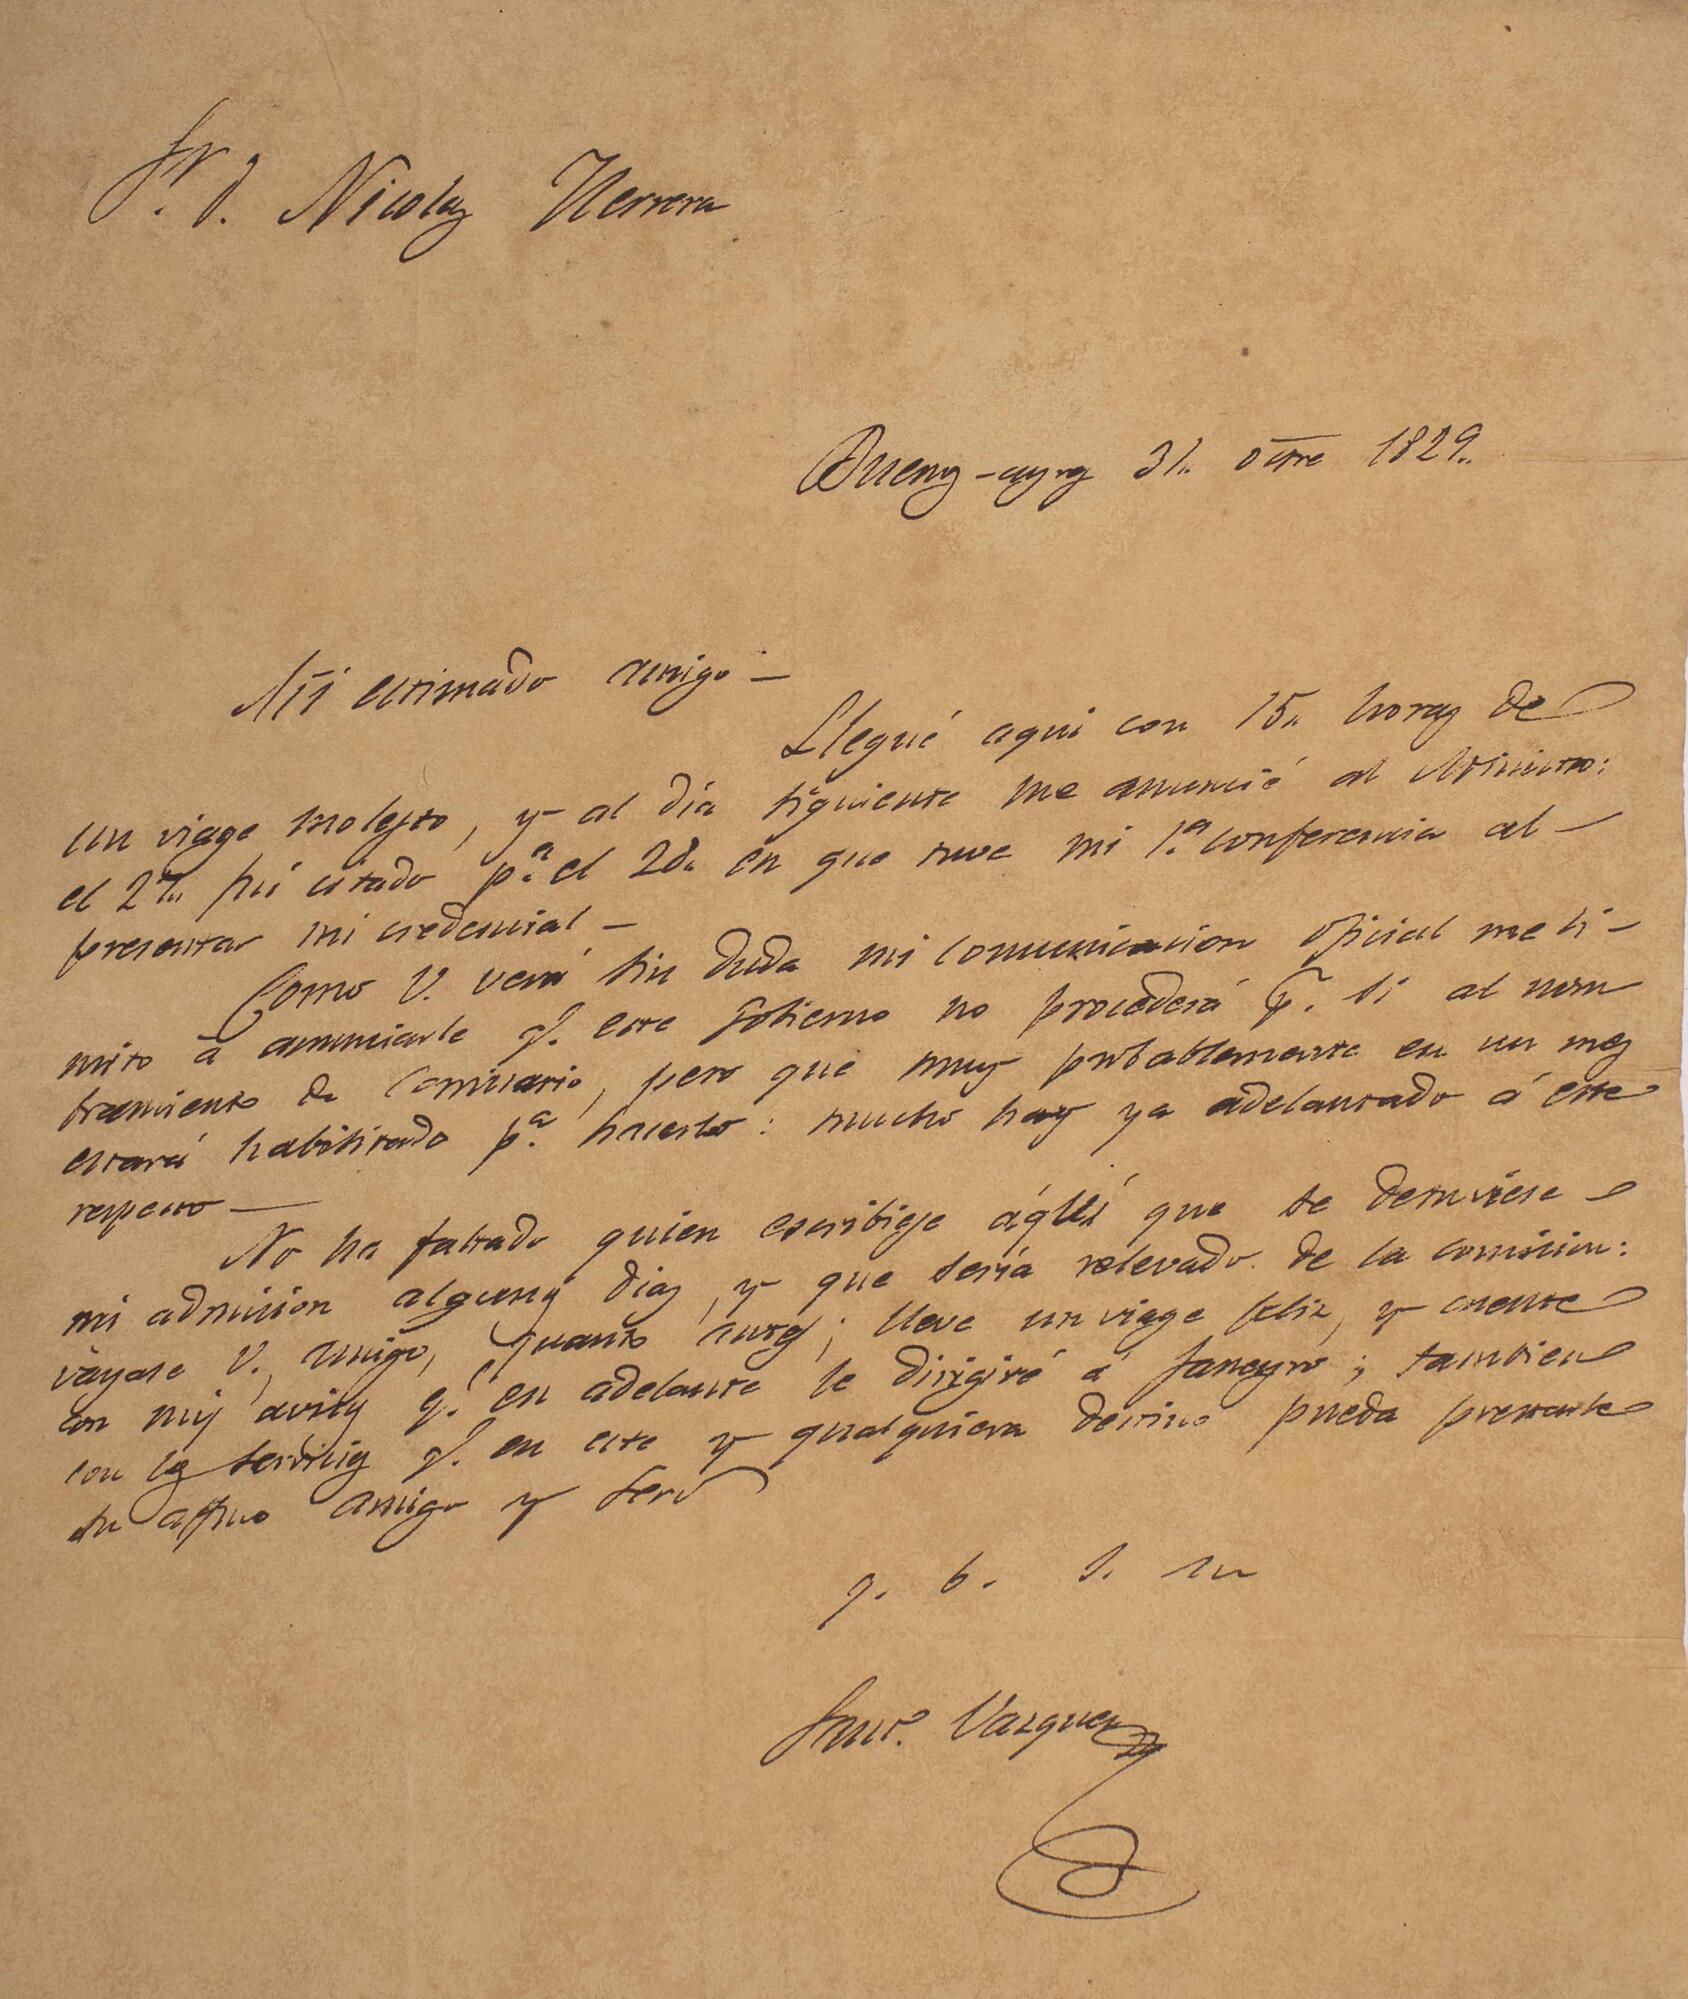 Sr. D. Nicolas Herrera
Buenos-ayres 31. 8tbre 1829.
Mi estimado amigo—
Llegué aqui con 15. horas de
un viage molesto, y al dia siguiente me anuncié al Ministro:
el 27. fui citado pa. el 28. en que tuve mi 1.a conferencia al
presentar mi credencial—
Como V. verá sin duda mi comunicacion oficial me li-
mito á anunciarle q. este Gobierno no procederá pr. si al nom
bramiento de Comisario, pero que muy probablemente en un mes
estará habilitado pa. hacerlo: mucho hay ya adelantado á este
respecto—
No ha faltado quien escribiese áquí que se detuviese
mi admision algunos dias, y que sería relevado de la comision:
váyase V., amigo, quanto antes; lleve un viage feliz, y cuente
con mis avisos q. en adelante le dirigiré á Janeyro; tambien
con los servicios q. en este y qualquiera destino pueda prestarle
su afmo amigo y serv
q. b. s. m
Santo. Vazquez